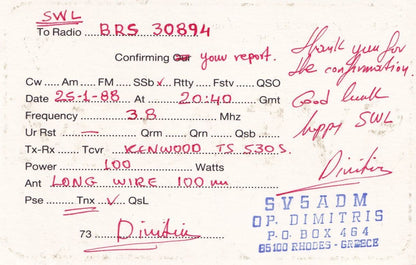 SWL
To Radio BRS 30894
Confirming Our your report.
Cw ... Am ... FM ... SSb ✓ Rtty ... Fstv ... QSO
Date 25-1-88 At 20:40 Gmt
Frequency 3.8 Mhz
Ur Rst — Qrm ... Qrn ... Qsb ...
Tx-Rx ... Tcvr KENWOOD TS 530S.
Power 100 Watts
Ant LONG WIRE 100 m
Pse ... Tnx ✓ QsL
73 ... Dimitris
Thank you for
the confirmation.
Good luck
happy SWL
Dimitris
SV5ADM
OP. DIMITRIS
P.O. BOX 464
85100 RHODES - GREECE